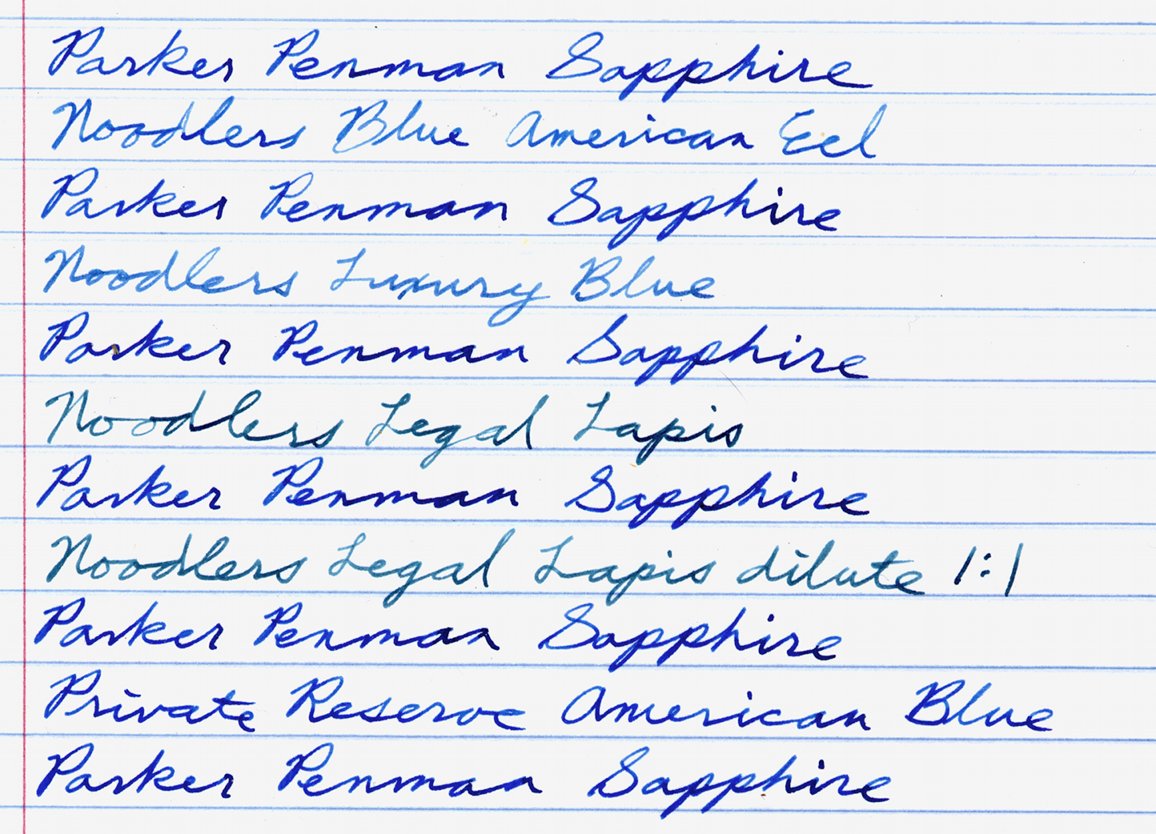 Parker Penman Sapphire
Noodlers Blue American Eel
Parker Penman Sapphire
Noodlers Luxury Blue
Parker Penman Sapphire
Noodlers Legal Lapis
Parker Penman Sapphire
Noodlers Legal Lapis dilute 1:1
Parker Penman Sapphire
Private Reserve American Blue
Parker Penman Sapphire